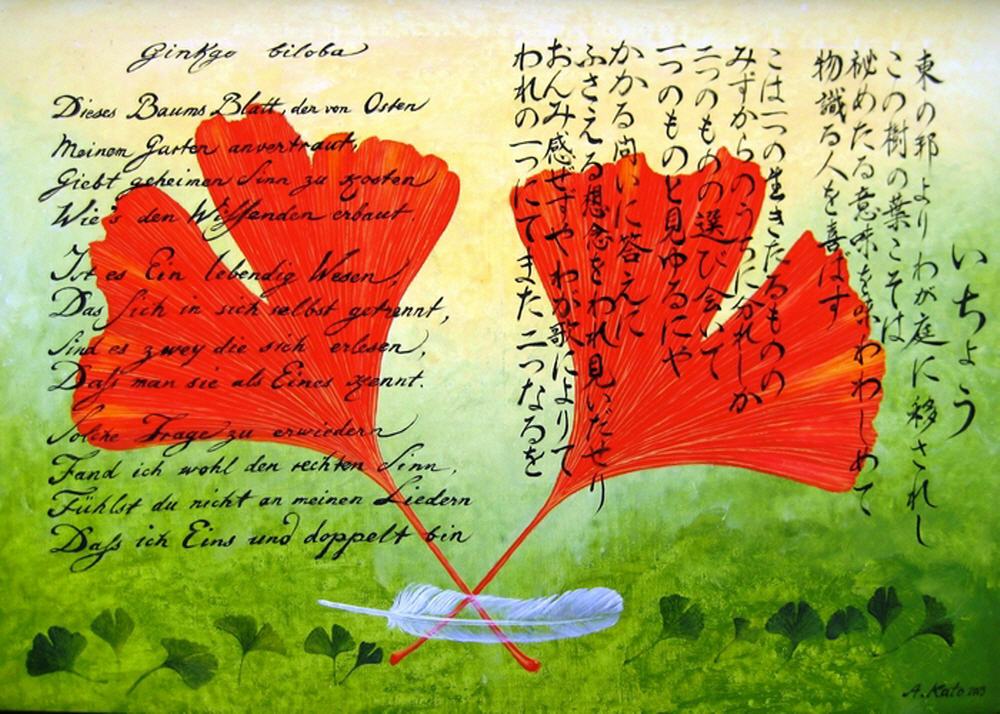 Ginkgo biloba
Dieses Baums Blatt, der von Osten
Meinem Garten anvertraut,
Giebt geheimen Sinn zu kosten
Wie's den Wiſſenden erbaut
Ist es Ein lebendig Wesen,
Das sich in sich selbst getrennt,
Sind es zwey die sich erlesen,
Daſs man sie als Eines kennt.
Solche Frage zu erwiedern
Fand ich wohl den rechten Sinn,
Fühlst du nicht an meinen Liedern
Daſs ich Eins und doppelt bin
いちょう
東の邦よりわが庭に移されし
この樹の葉こそは
秘めたる意味を味わわしめて
物識る人を喜ばす
こは一つの生きたるものの
みずからのうちに分れしか
二つのものの選び会いて
一つのものと見ゆるにや
かかる問いに答えに
ふさえる想念をわれ見いだせり
おんみ感ぜずやわが歌によりて
われの一つにてまた二つなるを
A. Kato